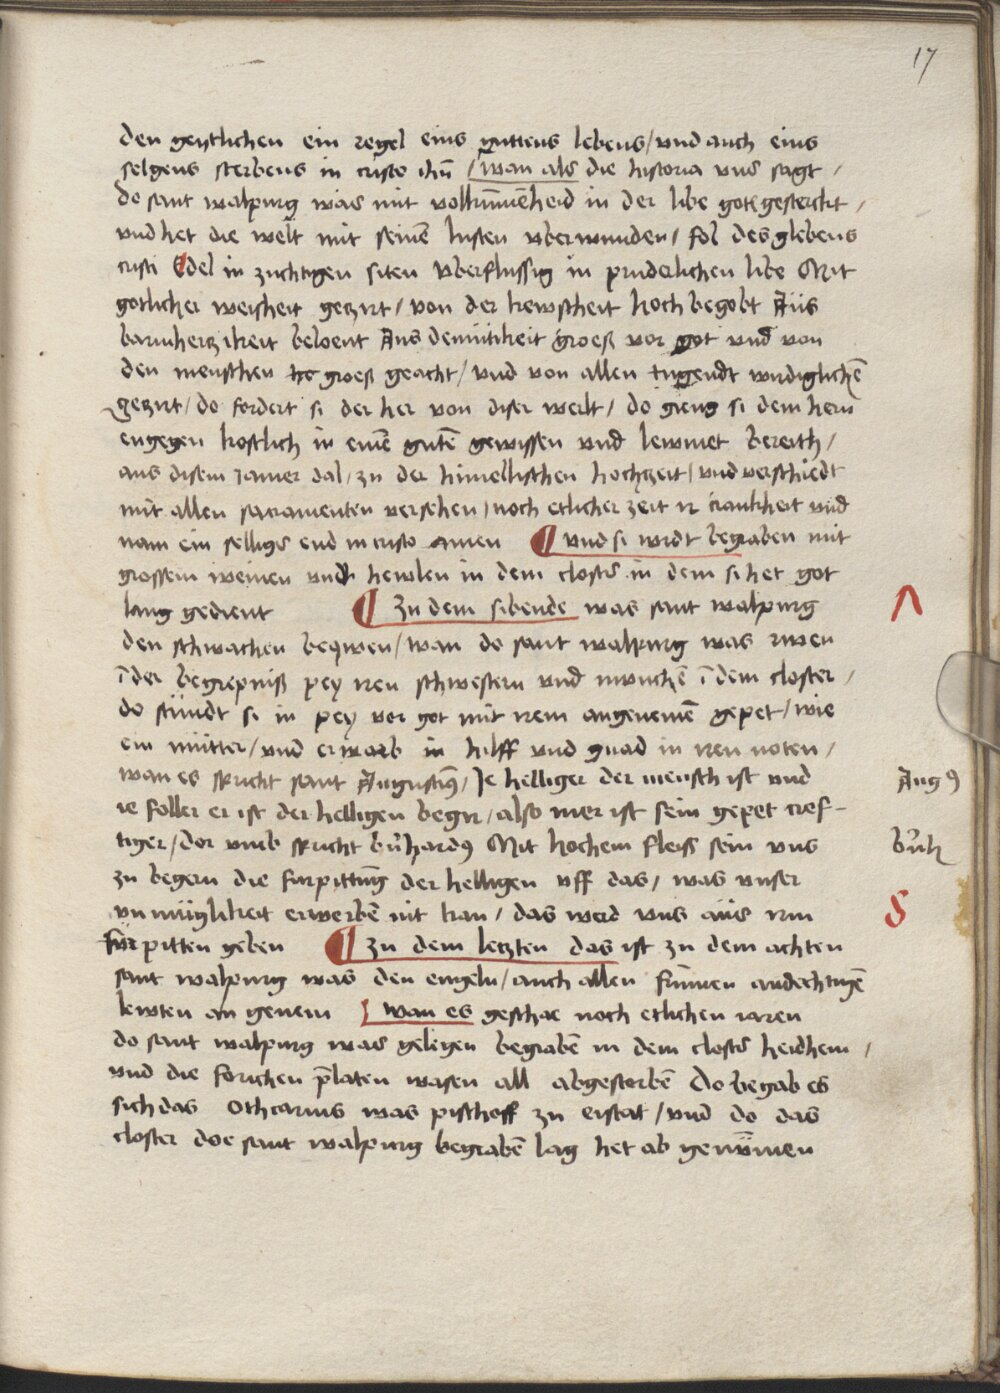 17
den geystlichen ein regel eins guttens lebens / vnd auch eins
selgens sterbens in cristo ihū / wan als die historia vns sagt /
do sant walpurg was mit volkumēheid in der libe gotz gesterckt /
vnd het die welt mit seinē lusten vberwunden / fol des glebens
cristi Edel in zuchtigen siten vberflussig in pruderlichen libe Mit
gotlicher weisheit gezirt / von der kewscheit hoch begobt Aüs
barmherzikeit beloent Aus demütikeit groeß vor got vnd von
den menschen groeß geacht / vnd von allen tugendt wirdiglichē
gezirt / do fordert si der her von diser werlt / do gieng si dem hern
engegen kostlich in einē gutē gewissen vnd lewmet bereith /
aus disem iamer dal / zu der himellischen hochzeit / vnd verschiedt
mit allen sacramenten versehen / noch etlicher zeit ir cranckheit vnd
nam ein selligs end in cristo amen ¶ vnd si wirdt begraben mit
grossem weinen vnd hewlen in dem closter in dem si het got
lang gedient ¶ Zu dem sibende was sant walpurg
Λ
den schwachen beqwen / wan do sant walpurg was irwen
ī der begrepniß pey iren schwestern vnd munchē ī dem closter /
do stündt si in pey vor got mit irem angenemē gepet / wie
ein mütter / vnd erwarb in hilff vnd gnad in iren noten /
wan es spricht sant Augustin9 / Je helliger der mensch ist vnd
Aug9
ie foller er ist der helligen begir / also mer ist sein gepet cref-
tiger / dor vmb spricht bʼnhard9 Mit hochem fleiss sein vns
bʼnh
zu begern die furpittūg der helligen vff das / was vnser
vnmüglikeit erwerbē nit kan / das werd vns aüs irm
8
für pitten geben ¶ zu dem letzten das ist zu dem achten
sant walpurg was den engeln / auch allen frümen andechtigē
lewten an genem / wan es geschae noch etlichen iaren
do sant walpurg was gelegen begrabē in dem closter heidhem /
vnd die forichen p̄laten wasen all abgestorbē Do begab es
sich das Othcarius was pischoff zu eistat / vnd do das
closter doe sant walpurg begrabē lag het ab genūmen